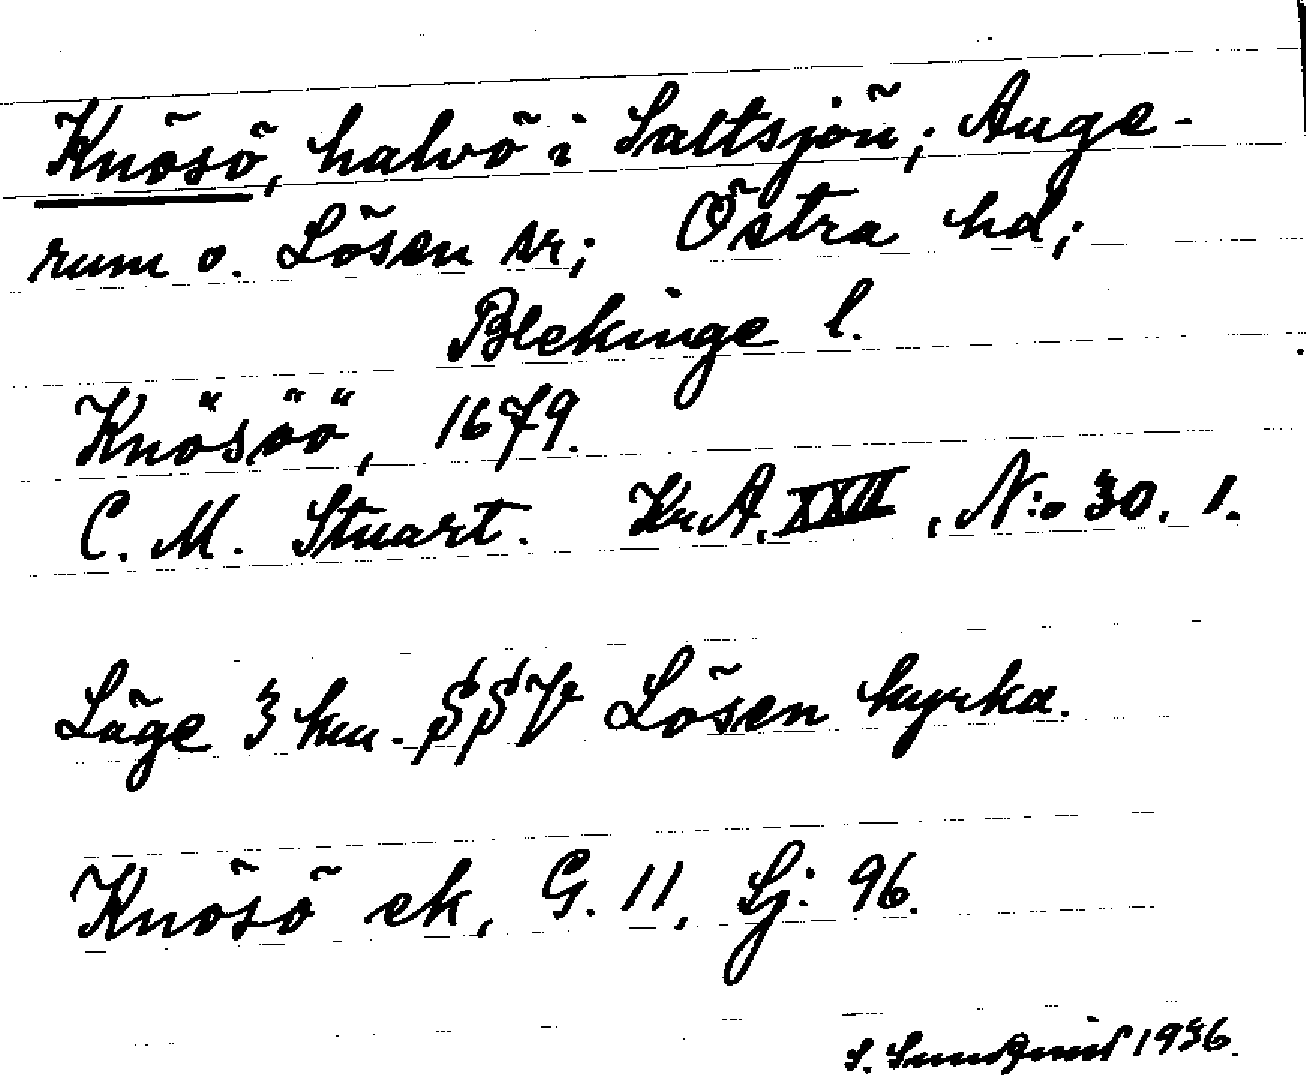 Knösö, halvö i Saltsjön; Auge-
rum o. Lösen sr; Östra hd;
Blekinge l.
Knösöö, 1679.
C. M. Stuart. Kr. A. XXII, N:o 30. 1.
Läge 3 km. SSV Lösen kyrka.
Knösö ek, G. 11, Sj: 96.
S. Sundqvist 1936.